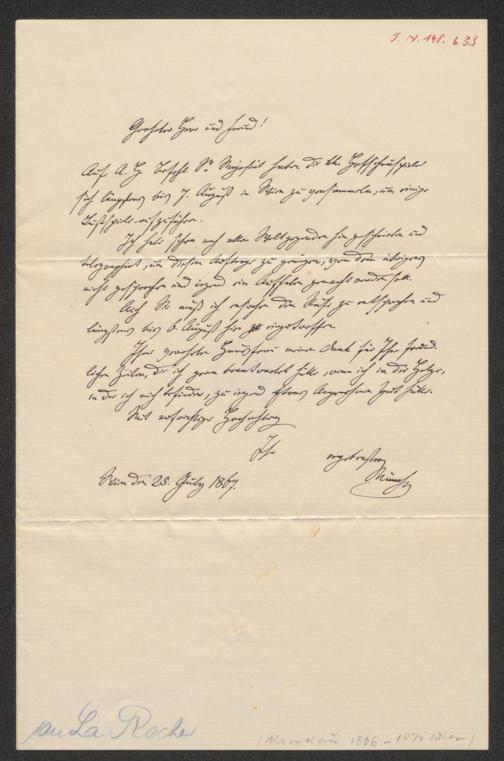 I. N. 148.633
Geehrter Herr und Freund!
Auf A. H. Befehl Sr. Majestät haben die k. k. Hofschauspieler
sich längstens bis 7. August in Wien zu versammeln, um einige
Lustspiele aufzuführen.
Ich habe schon nach allen Weltgegenden hin geschrieben und
telegraphirt, um diesem Auftrage zu genügen, von dem übrigens
nicht gesprochen und irgend ein Aufsehen gemacht werden soll.
Auch Sie muß ich ersuchen dem Rufe zu entsprechen und
längstens bis 6. August hier einzutreffen.
Ihrer geehrten Hausfrau meinen Dank für Ihre freund
lichen Zeilen, die ich gern beantwortet hätte, wenn ich in der Hetze,
in der ich mich befinde, zu irgend etwas Angenehmem Zeit hätte.
Mit vorzüglicher Hochachtung
Ihr
ergebenster
Münch
Wien den 28. July 1867.
an La Roche
1866 – 1871 Wien)